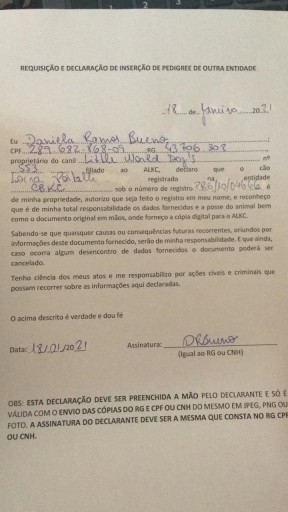 REQUISIÇÃO E DECLARAÇÃO DE INSERÇÃO DE PEDIGREE DE OUTRA ENTIDADE
18 de Janeiro 2021
Eu Daniela Ramos Bueno
CPF RG 43706308
proprietário do canil Little World Dog's nº
553 filiado ao ALKC, declaro que o cão
Luna registrado na entidade
CBKC sob o número de registro é
de minha propriedade, autorizo que seja feito o registro em meu nome, e reconheço
que é de minha total responsabilidade os dados fornecidos e a posse do animal bem
como o documento original em mãos, onde forneço a cópia digital para o ALKC.
Sabendo-se que quaisquer causas ou consequências futuras recorrentes, oriundos por
informações deste documento fornecido, serão de minha responsabilidade. E que ainda,
caso ocorra algum desencontro de dados fornecidos o documento poderá ser
cancelado.
Tenho ciência dos meus atos e me responsabilizo por ações civeis e criminais que
possam recorrer sobre as informações aqui declaradas.
O acima descrito é verdade e dou fé
Data: 18/01/2021 Assinatura: DRBueno
(Igual ao RG ou CNH)
OBS: ESTA DECLARAÇÃO DEVE SER PREENCHIDA A MÃO PELO DECLARANTE E SÓ É
VÁLIDA COM O ENVIO DAS CÓPIAS DO RG E CPF OU CNH DO MESMO EM JPEG, PNG OU
FOTO. A ASSINATURA DO DECLARANTE DEVE SER A MESMA QUE CONSTA NO RG CPF
OU CNH.